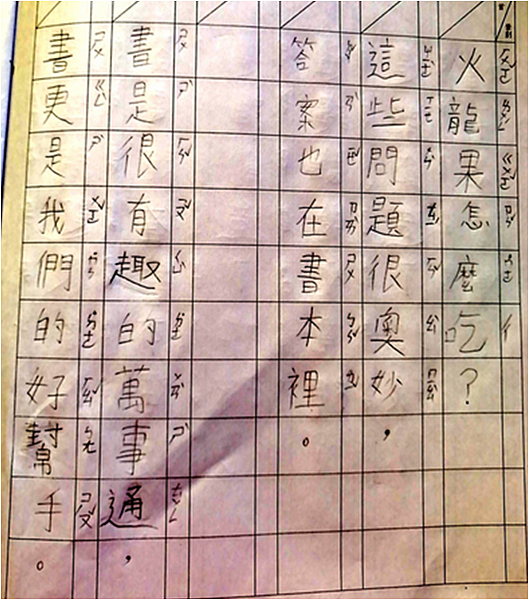 火龍果怎麼吃？
這些問題很奧妙，
答案也在書本裡。
書是很有趣的萬事通，
書更是我們的好幫手。